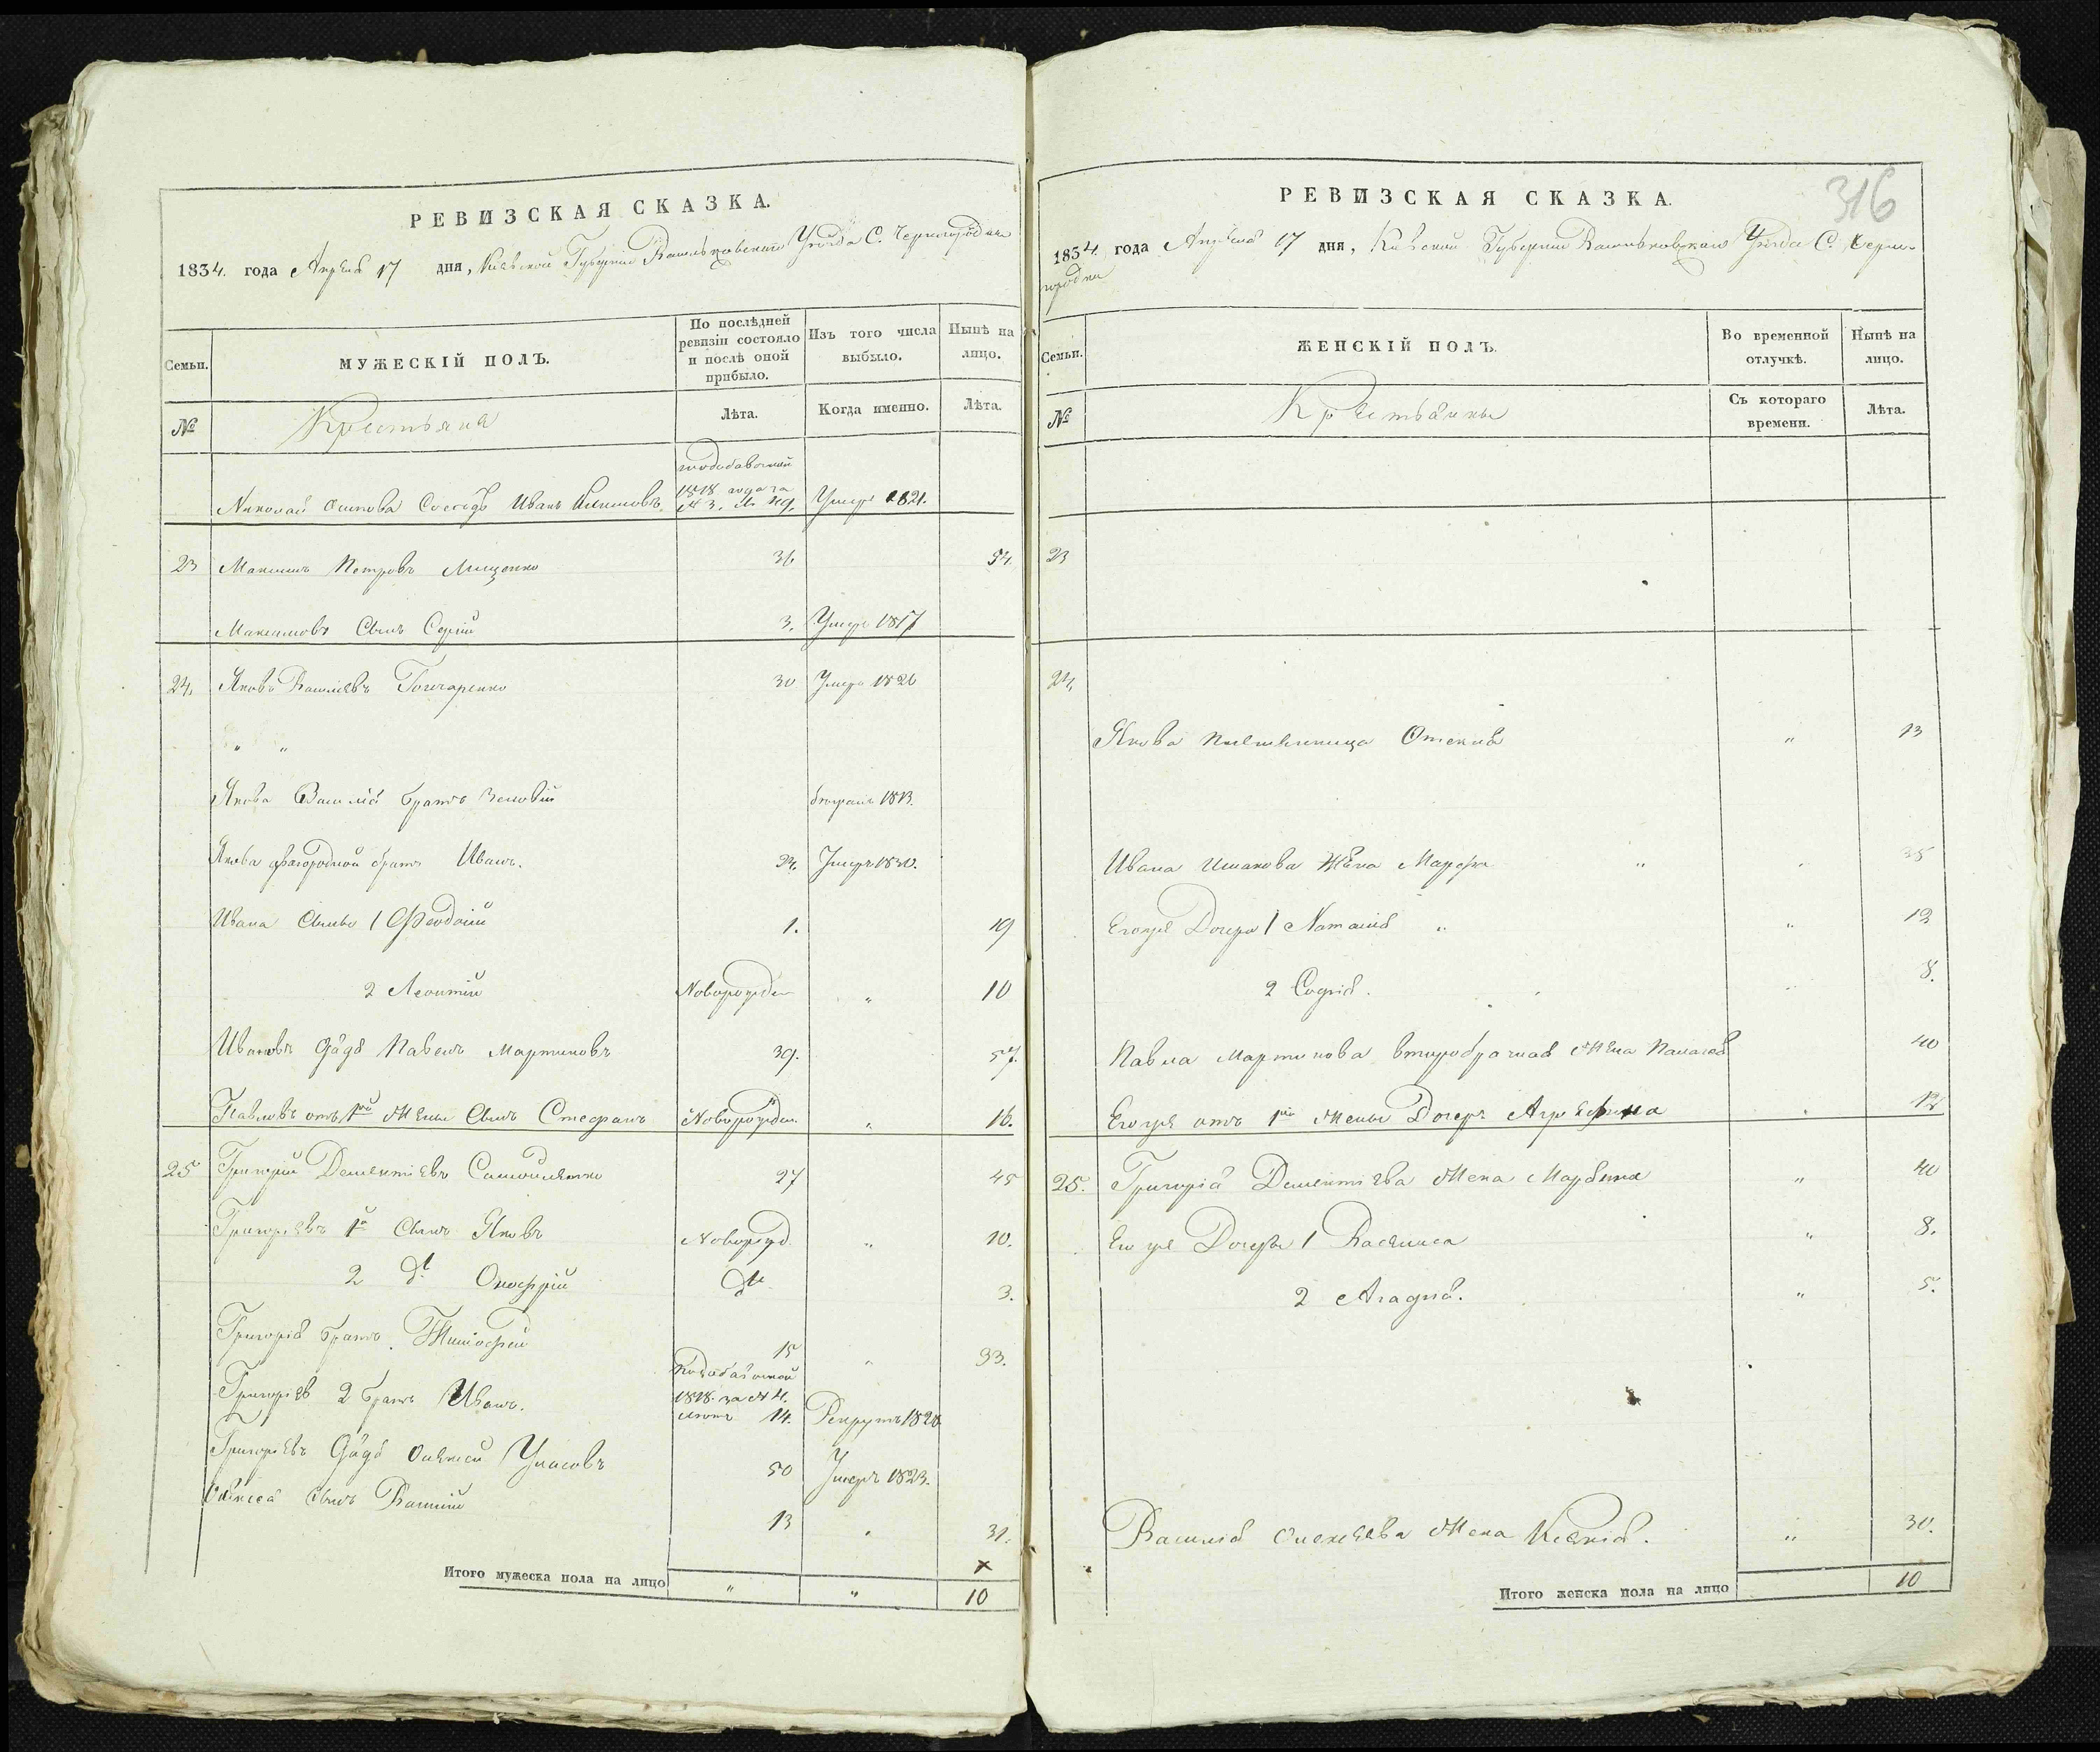 РЕВИЗСКАЯ СКАЗКА.
1834. года Апреля 17 дня, Киевской Губернии Васильковскаго Уезда С. Черногородки
Семьи.
МУЖЕСКІЙ ПОЛЪ.
По послѣдней ревизіи состояло и послѣ оной прибыло.
Изъ того числа выбыло.
Нынѣ на лицо.
№
Крестьяне
Лѣта.
Когда именно.
Лѣта.
Николай Осипова Соседъ Иванъ 1818 года за № 3. 49. Умеръ 1821.
23 Максимъ Петровъ Мищенко 36 54.
Максимовъ Сынъ Сергій 3. Умеръ 1817
24. Яковъ Васильевъ Гончаренко 30 Умеръ 1826
" "
Якова Василія братъ Зеновій 1813.
Якова братъ Иванъ. 24. Умеръ 1830.
Ивана Сыновья 1 Феодосій 1. 19
2 Леонтій Новорожден " 10
Ивановъ дядя Павелъ Мартиновъ 39. 57.
Павловъ отъ 1ой Жены Сынъ Стефанъ Новорожден. " 16.
25 Григорій Дементіевъ Самойленко 27 45
Григорьевъ 1й Сынъ Яковъ Новорожд. " 10.
2 д. Онофрій 3.
Григорія братъ Тимофей 15 " 33.
Григоріевъ 2 братъ Иванъ. 1818 за № 4. 14. Рекрутъ 1828
Григорьевъ дядя Олексей Уласовъ 50 Умеръ 1823.
Олексея Сынъ Василій 13 " 31.
×
Итого мужеска пола на лицо " " 10
316
РЕВИЗСКАЯ СКАЗКА.
1834. года Апреля 17 дня, Киевской Губернии Васильковскаго Уезда С. Черно-
городки
Семьи.
ЖЕНСКІЙ ПОЛЪ.
Во временной отлучкѣ.
Нынѣ на лицо.
№
Крестьянки
Съ котораго времени.
Лѣта.
23
24.
Якова племянница 13
Ивана Жена Марфа " 35
Его же Дочери 1 Наталія " " 12
2 Софія. 8.
Павла Мартинова второбрачная Жена Палагея 40
Его же отъ 1й Жены Дочерь Агрефина
25. Григорія Дементіева Жена Марьяна " 40
Его же Дочери 1 Василиса " 8.
2 Агафія. " 5.
Василія Олексеева Жена Ксенія. " 30.
Итого женска пола на лицо 10